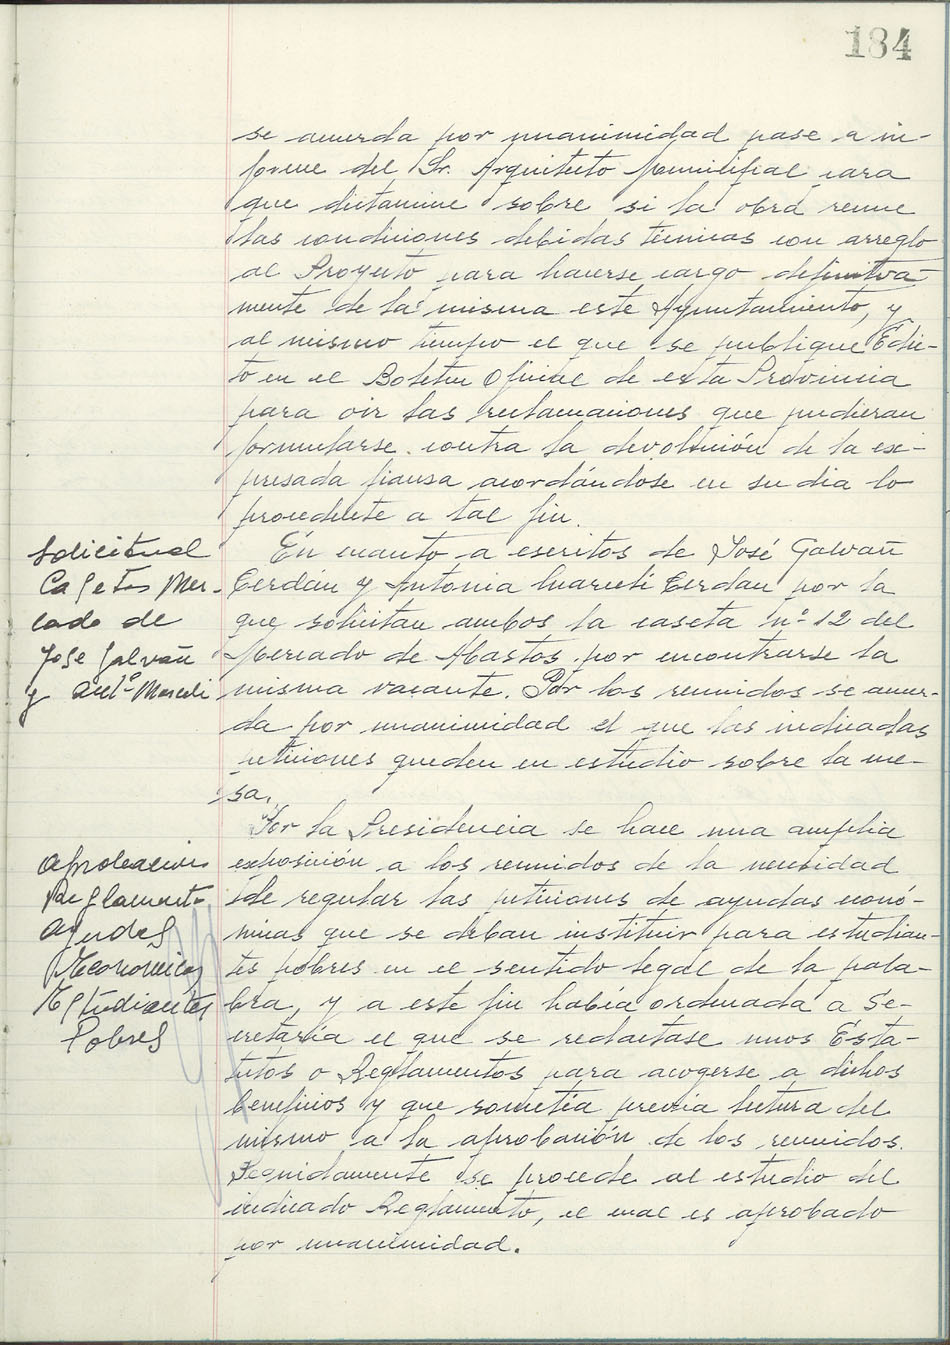 184
se acuerda por unanimidad pase a in-
forme del Sr. Arquitecto Municipal para
que dictamine sobre si la obra reune
las condiciones debidas técnicas con arreglo
al Proyecto para hacerse cargo definitiva-
mente de la misma este Ayuntamiento, y
al mismo tiempo el que se publique Edic-
to en el Boletín Oficial de esta Provincia
para oir las reclamaciones que pudieran
formularse contra la devolución de la ex-
presada fianza acordándose en su dia lo
procedente a tal fin.
Solicitud
Casetas Mer-
cado de
Jose Galvañ
y Antº Marculi
En cuanto a escritos de José Galvañ
Cerdán y Antonia Marculi Cerdan por la
que solicitan ambos la caseta nº 12 del
Mercado de Abastos por encontrarse la
misma vacante. Por los reunidos se acuer-
da por unanimidad el que las indicadas
peticiones queden en estudio sobre la me-
sa.
Aprobacion
Reglamento
Ayudas
Economicas
Estudiantes
Pobres
Por la Presidencia se hace una amplia
exposición a los reunidos de la necesidad
de regular las peticiones de ayudas econó-
micas que se deban instituir para estudian-
tes pobres en el sentido legal de la pala-
bra, y a este fin había ordenada a Se-
cretaría el que se redactase unos Esta-
tutos o Reglamentos para acogerse a dichos
beneficios y que sometía previa lectura del
mismo a la aprobación de los reunidos.
Seguidamente se procede al estudio del
indicado Reglamento, el cual es aprobado
por unanimidad.